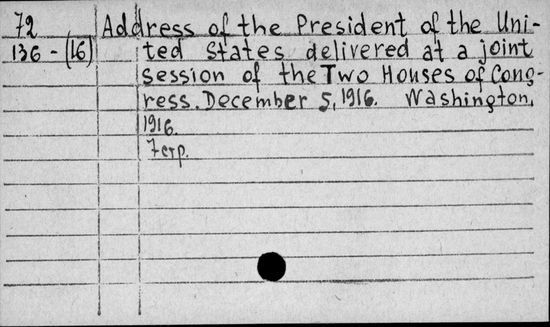 72 Address of the President of the Uni-
136-(16) ted States delivered at a joint
session of the Two Houses of Cong-
ress. December 5, 1916. Washington,
1916.
7 стр.